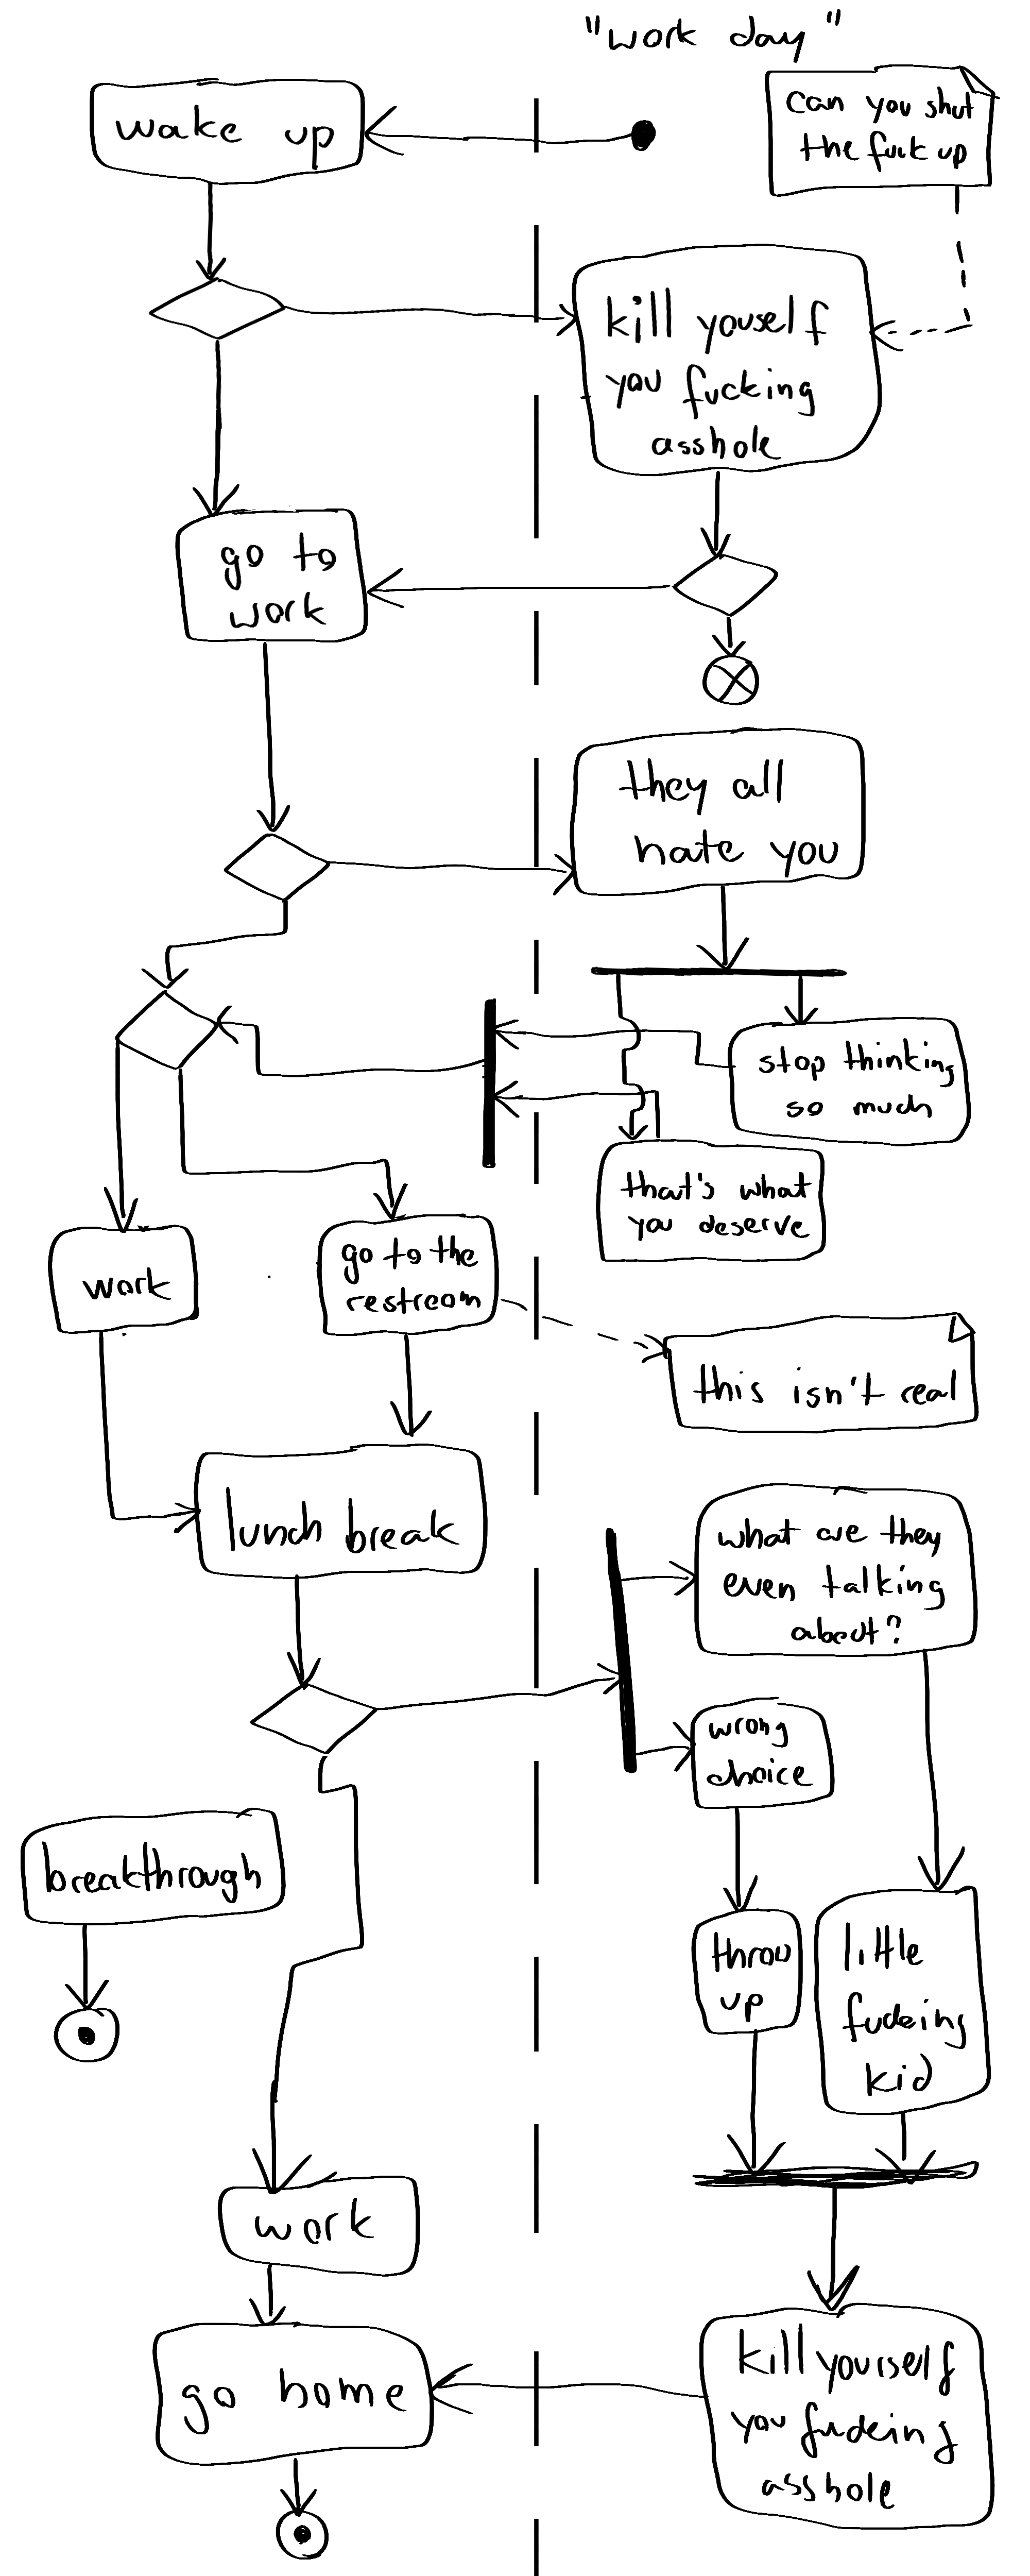 "work day"
wake up
can you shut
the fuck up
kill youself
you fucking
asshole
go to
work
they all
hate you
stop thinking
so much
that's what
you deserve
work
go to the
restroom
this isn't real
lunch break
what are they
even talking
about?
wrong
choice
breakthrough
throw
up
little
fucking
kid
work
go home
kill yourself
you fucking
asshole